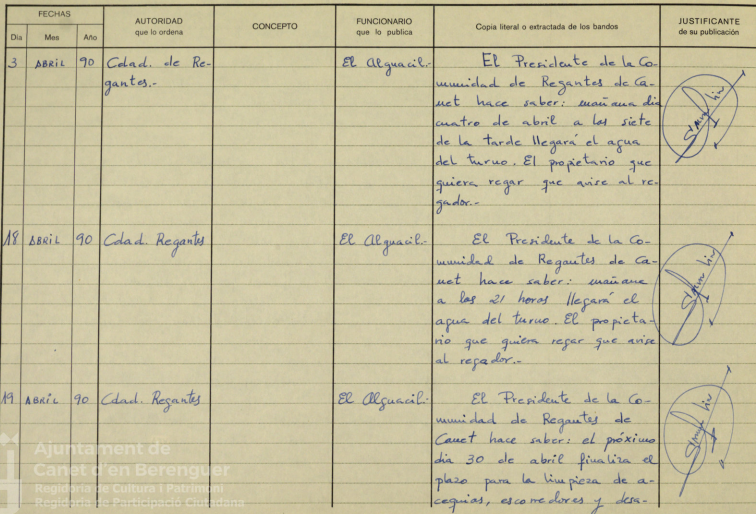 FECHAS
Día Mes Año
AUTORIDAD
que lo ordena
CONCEPTO
FUNCIONARIO
que lo publica
Copia literal o extractada de los bandos
JUSTIFICANTE
de su publicación
3 ABRIL 90 Cdad. de Re-
gantes.-
El Alguacil.-
El Presidente de la Co-
munidad de Regantes de Ca-
net hace saber: mañana dia
cuatro de abril a las siete
de la tarde llegará el agua
del turno. El propietario que
quiera regar que avise al re-
gador.-
18 ABRIL 90 Cdad. Regantes
El Alguacil.-
El Presidente de la Co-
munidad de Regantes de Ca-
net hace saber: mañana
a las 21 horas llegará el
agua del turno. El propieta-
rio que quiera regar que avise
al regador.-
19 ABRIL 90 Cdad. Regantes
El Alguacil.-
El Presidente de la Co-
munidad de Regantes de
Canet hace saber: el próximo
dia 30 de abril finaliza el
plazo para la limpieza de a-
cequias, escorredores y desa-
Ajuntament de
Canet d'en Berenguer
Regidoria de Cultura i Patrimoni
Regidoria de Participació Ciutadana